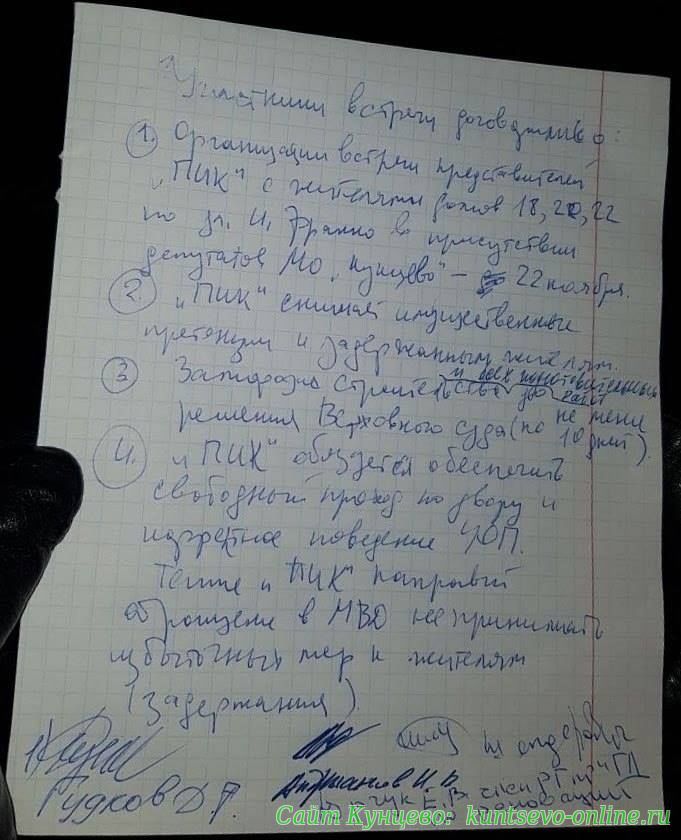 Участники встречи договорились о:
1. Организации встречи представителей
"ПИК" с жителями домов 18, 20, 22
по ул. И. Франко в присутствии
депутатов МО "Кунцево" – 22 ноября.
2. "ПИК" снимает имущественные
претензии к задержанным жителям.
3 Заморозка строительства и всех подготовительных работ до
решения Верховного суда (но не менее
10 дней).
4. "ПИК" обязуется обеспечить
свободный проход по двору и
корректное поведение ЧОП.
Также "ПИК" направит
обращение в МВД не принимать
избыточных мер к жителям
(задержания).
Гудков Д.Г.
Андрианов И.В.
Сайт Кунцево: kuntsevo-online.ru